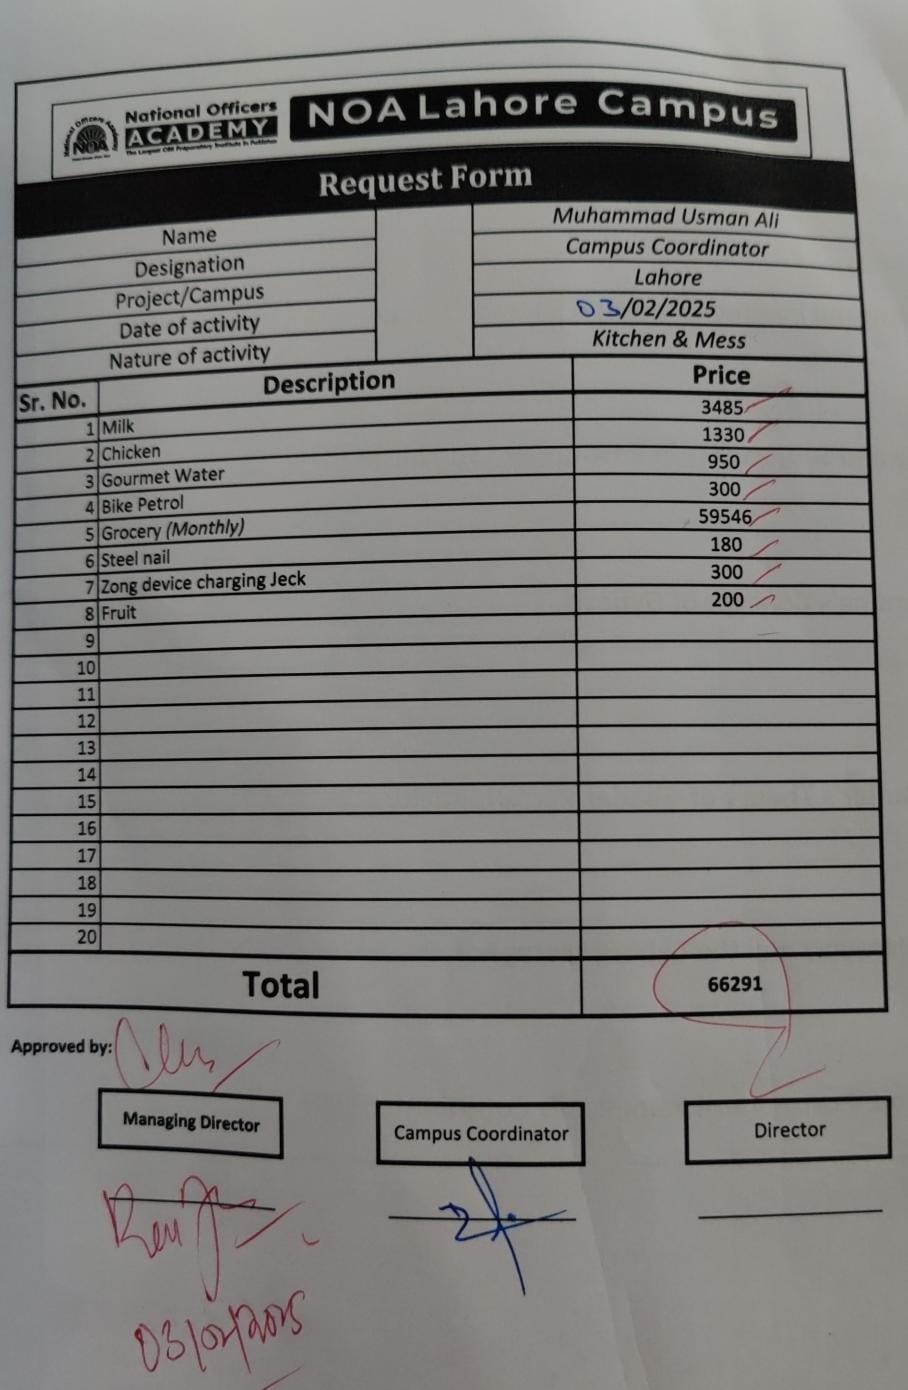 National Officers
ACADEMY
The Largest CSS Preparatory Institute in Pakistan
NOA
NOA Lahore Campus
Request Form
Name Muhammad Usman Ali
Designation Campus Coordinator
Project/Campus Lahore
Date of activity 03/02/2025
Nature of activity Kitchen & Mess
Sr. No. Description Price
1 Milk 3485
2 Chicken 1330
3 Gourmet Water 950
4 Bike Petrol 300
5 Grocery (Monthly) 59546
6 Steel nail 180
7 Zong device charging Jeck 300
8 Fruit 200
9
10
11
12
13
14
15
16
17
18
19
20
Total 66291
Approved by:
Managing Director Campus Coordinator Director
03/02/2025